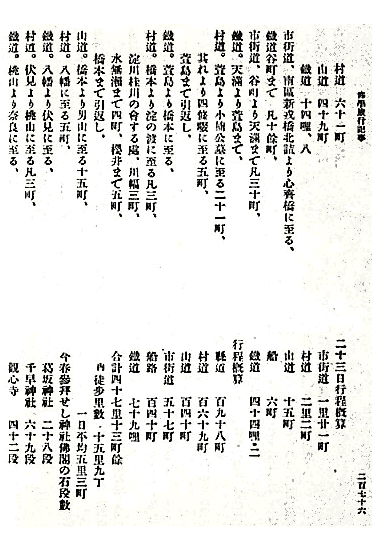 修學旅行記事
二百七十六
村道 六十二町
山道 四十九町
鐵道 十四哩、八
市街道、南區新戎橋北詰より心齋橋に至る、
鐵道谷町まで 凡十餘町、
市街道、谷町より天滿まで凡三十町、
鐵道、天滿より萱島まで、
村道、萱島より小楠公墓に至る二十一町、
其れより四條畷に至る五町、
萱島まで引返し、
鐵道、萱島より橋本に至る、
村道、橋本より淀の渡に至る凡三町、
淀川桂川の會する處、川幅三町、
水無瀨まで四町、櫻井まで五町、
橋本まで引返し、
山道、橋本より男山に至る十五町、
村道、八幡に至る五町、
鐵道、八幡より伏見に至る、
村道、伏見より桃山に至る凡三町、
鐵道、桃山より奈良に至る、
二十三日行程概算
市街道 一里廿一町
村道 二里二町
山道 十五町
船 六町
鐵道 四十四哩・二
行程概算
縣道 百九十八町
村道 百六十九町
山道 百四十町
市街道 五十七町
船路 百四十町
鐵道 七十九哩
合計四十七里十三町餘
內 徒步里數 十五里九丁
一日平均五里三町
今春參拜せし神社佛閣の石段數
葛坂神社 二十八段
千早神社 六十九段
觀心寺 四十二段